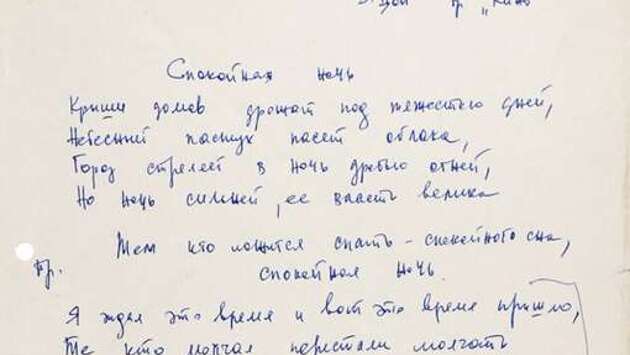 В. Цой гр. „Кино"
Спокойная ночь
Крыши домов дрожат под тяжестью дней,
Небесный пастух пасёт облака,
Город стреляет в ночь дробью огней,
Но ночь сильней, её власть велика
Тем кто ложится спать - спокойного сна,
Пр.
спокойная ночь.
Я ждал это время и вот это время пришло,
Те кто молчал перестали молчать